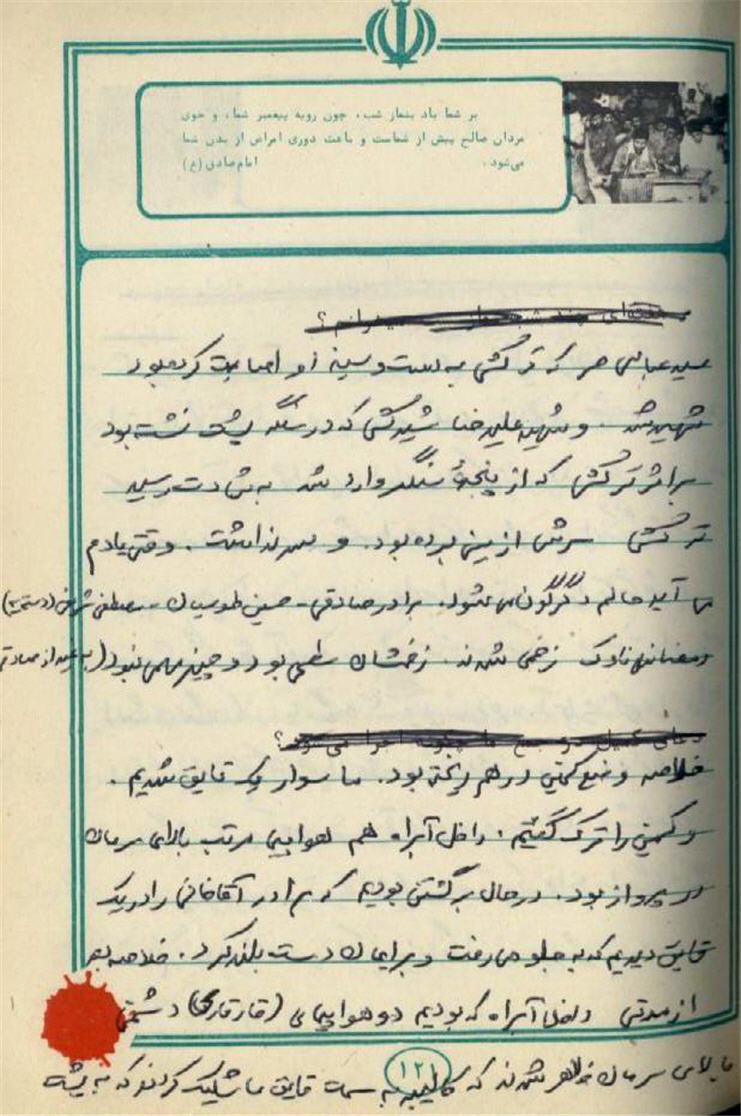 بر شما باد بنماز شب، چون رویه پیغمبر شما، و خوی
مردان صالح پیش از شماست و باعث دوری امراض از بدن شما
می‌شود. امام صادق (ع)
سید عباس هم که ترکش به دست و سینه او اصابت کرده بود
شهید شد. و شهید علیرضا شیرکش که در سنگر پشت نشسته بود
بر اثر ترکش که از پنجرهٔ سنگر وارد شد به شهادت رسید
ترکش سرش از بین برده بود. و سر نداشت. وقتی یادم
می آید حالم دگرگون می‌شود. برادر صادقی - حسین طوسیان - مصطفی
رمضانی ناوک زخمی شدند. زخمشان سطحی بود و چیز مهمی نبود (به غیر از صادقی
خلاصه وضع کمین در هم ریخته بود. ما سوار یک قایق شدیم.
و کمین را ترک گفتیم. داخل آبراه هم هواپیما مرتب بالای سرمان
در پرواز بود. در حال برگشتن بودیم که برادر آقاخانی را در یک
قایق دیدیم که به جلو می‌رفت و برایمان دست بلند کرد. خلاصه بعد
از مدتی داخل آبراه که بودیم دو هواپیمای (قارقارکی) دشمن
بالای سرمان ظاهر شدند که کالیبر به سمت قایق ما شلیک کردند که به
۱۲۱